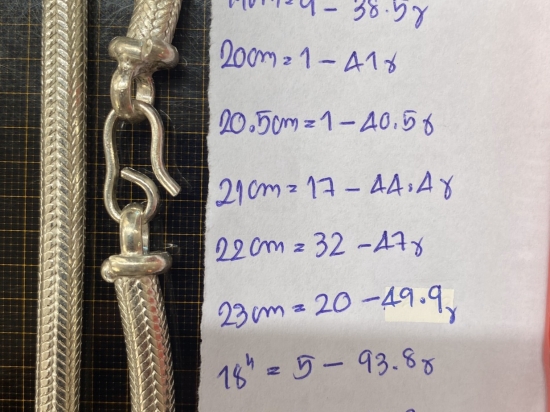 20cm = 1 - 41g
20.5cm = 1 - 40.5g
21cm = 17 - 44.4g
22cm = 32 - 47g
23cm = 20 - 49.9g
18" = 5 - 93.8g